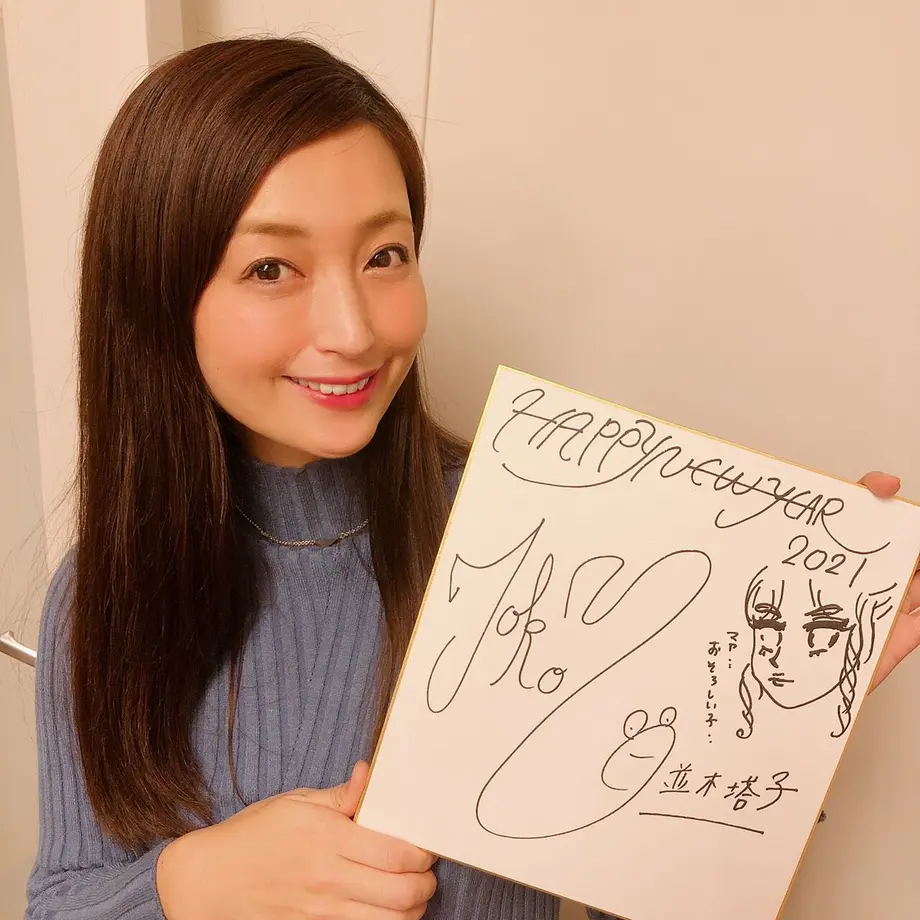 HAPPY NEW YEAR
2021
Toko
マァ…
おそろしい子…
並木塔子